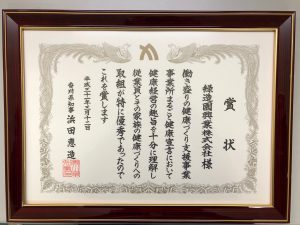 賞状
緑造園興業株式会社 様
働き盛りの健康づくり支援事業
事業所まるごと健康宣言において
健康経営の趣旨を十分に理解し
従業員とその家族の健康づくりへの
取組が特に優秀であったので
これを賞します
平成三十一年三月十二日
香川県知事 浜田恵造